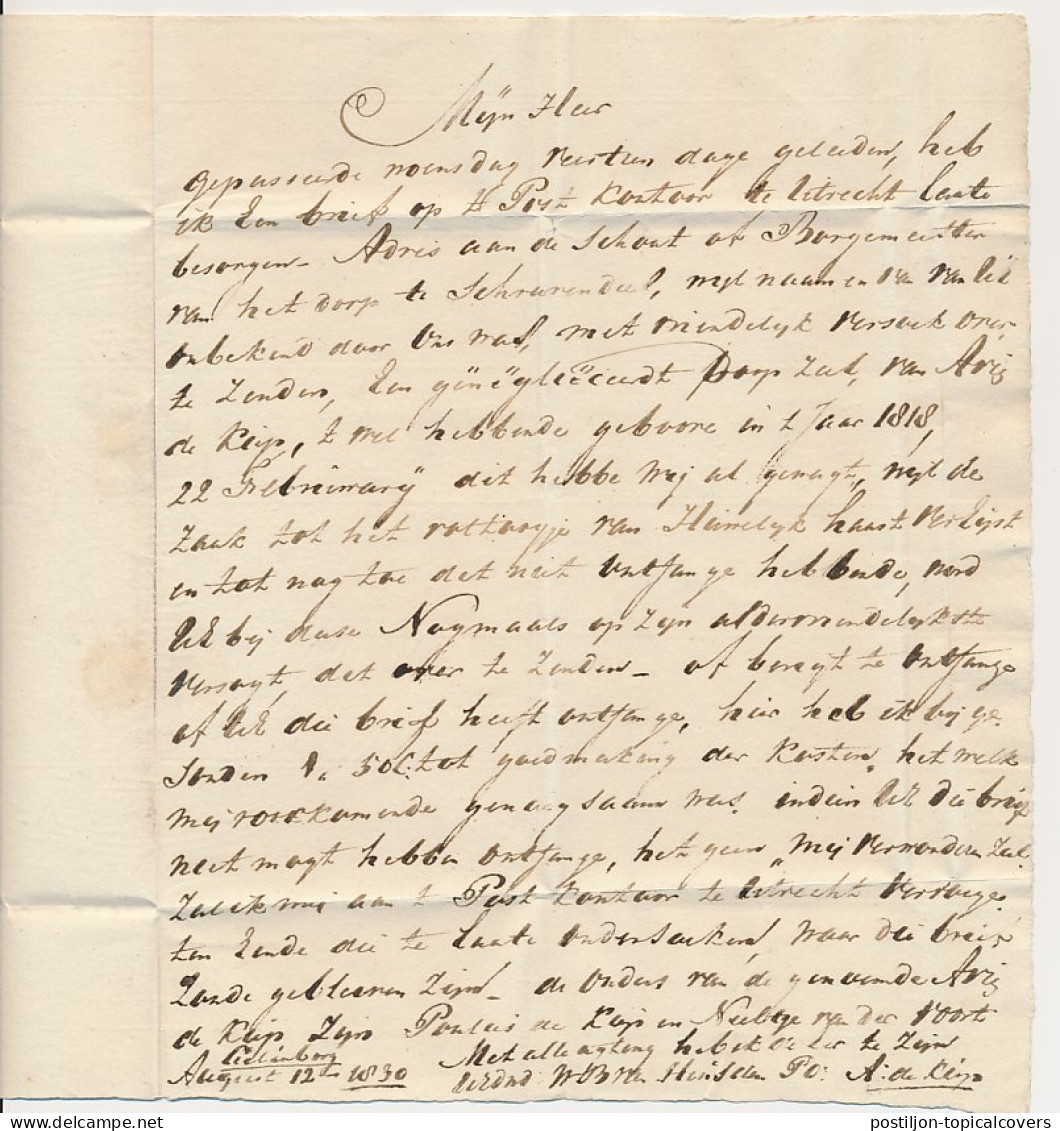 Mijn Heer
gepasseerde woensdag veertien dage geleeden, heb
ik Een brief op 't Post kontoor te Utrecht laate
besorgen - Adres aan de Schout of Borgemeester
van het Dorp te Schravendeel, wijl naam en van van die
onbekend door Ons was, met vriendelijk versoek over
te Zenden, Een Dorp Zeel, van Arij
de Keijs, 't wel hebbende geboore in 't Jaar 1818,
22 Februwarij dit hebbe Mij al gewagt, wijl de
Zaak tot het van Huwelijk haast verEijst
en tot nog toe dat niet Ontfange hebbende, word
UE bij dese Nogmaals op Zijn aldervriendelijkste
versogt, dat over te Zenden - of berigt te Ontfange
of UE die brief heeft ontfange, hier heb ik bij ge
Sonden 50 C: tot goedmaking der Kosten, het welk
mij voorkomende genoegsaam was. indien UE die brief
niet mogt hebben Ontfange, het geen Mij verwonderen Zal.
Zal ik mij aan 't Post kontoor te Utrecht vervoege
ten Einde die te laate Ondersoeken, waar die brief
Zoude gebleeven Zijn - de Ouders van de genoemde Arij
de Keijs Zijn Pouleis de Keijs en Neeltje van der Voort
Culenborg Met alle agting heb ik de Eer te Zijn
August 12te 1830 UEDWD A: de Keijs
postiljon-topicalcovers